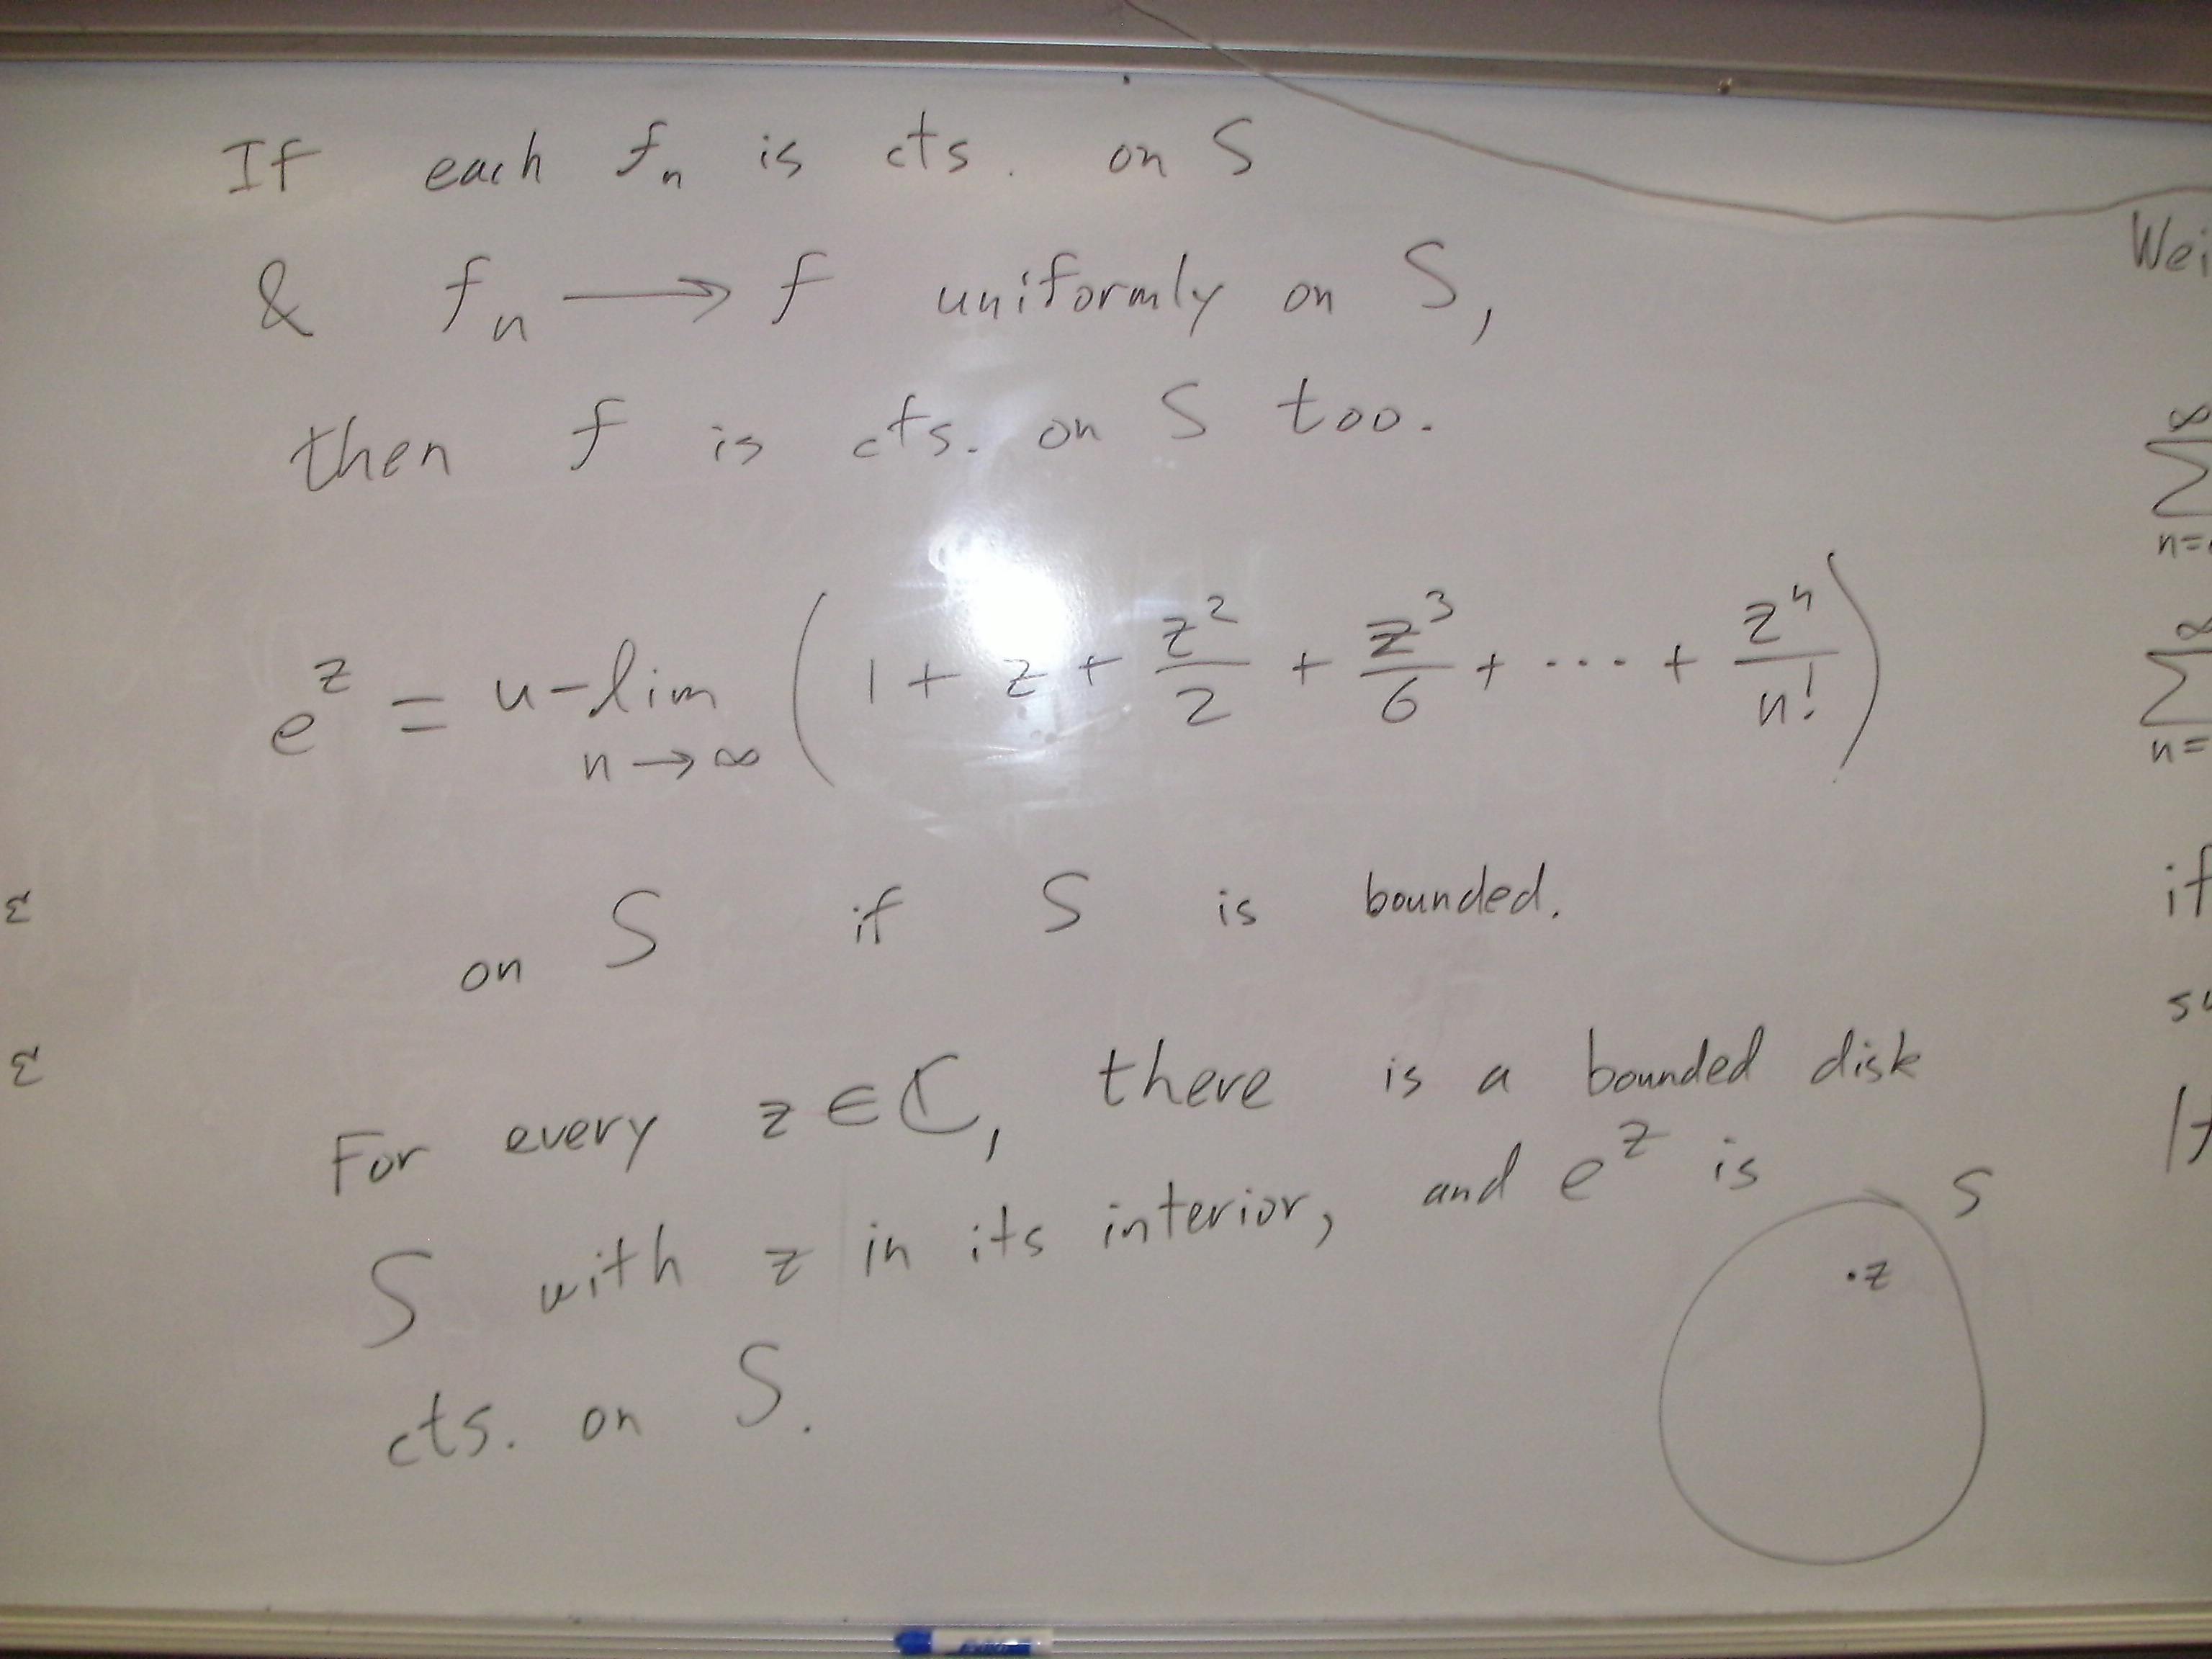 If each fₙ is cts. on S
& fₙ ⟶ f uniformly on S,
then f is cts. on S too.
e^z = u-lim_{n→∞} ( 1 + z + z²/2 + z³/6 + ··· + zⁿ/n! )
on S if S is bounded.
For every z ∈ ℂ, there is a bounded disk
S with z in its interior, and e^z is
cts. on S.
S
·z
ε
ε
∞
Σ
n=
∞
Σ
n=
if